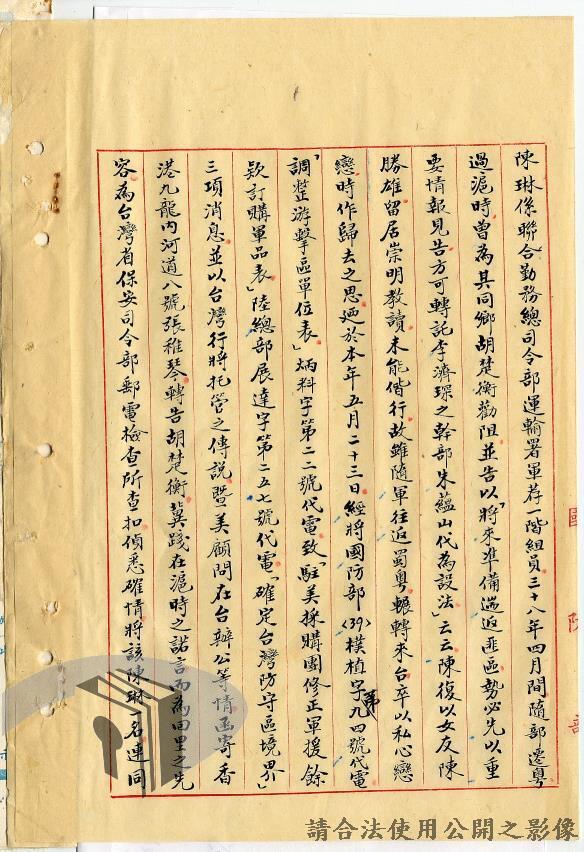 陳琳係聯合勤務總司令部運輸署軍荐一階組員三十八年四月間隨部遷粵
過滬時曾為其同鄉胡楚衡勸阻並告以「將來準備遄返匪區勢必先以重
要情報見告方可轉託李濟琛之幹部朱蘊山代為設法」云云陳復以女友陳
勝雄留居崇明教讀未能偕行故雖隨軍往返蜀粵輾轉來台卒以私心戀
戀時作歸去之思迺於本年五月二十三日經將國防部(39)樸植字第九四號代電
「調整游擊區單位表」炳科字第二二號代電致「駐美採購團修正軍援餘
款訂購單品表」陸總部展達字第二五七號代電「確定台灣防守區境界」
三項消息並以台灣行將托管之傳說暨美顧問在台辦公等情函寄香
港九龍內河道八號張稚琴轉告胡楚衡冀踐在滬時之諾言而為回里之先
容為台灣省保安司令部郵電檢查所查扣偵悉確情將該陳琳一名連同
國防部
請合法使用公開之影像